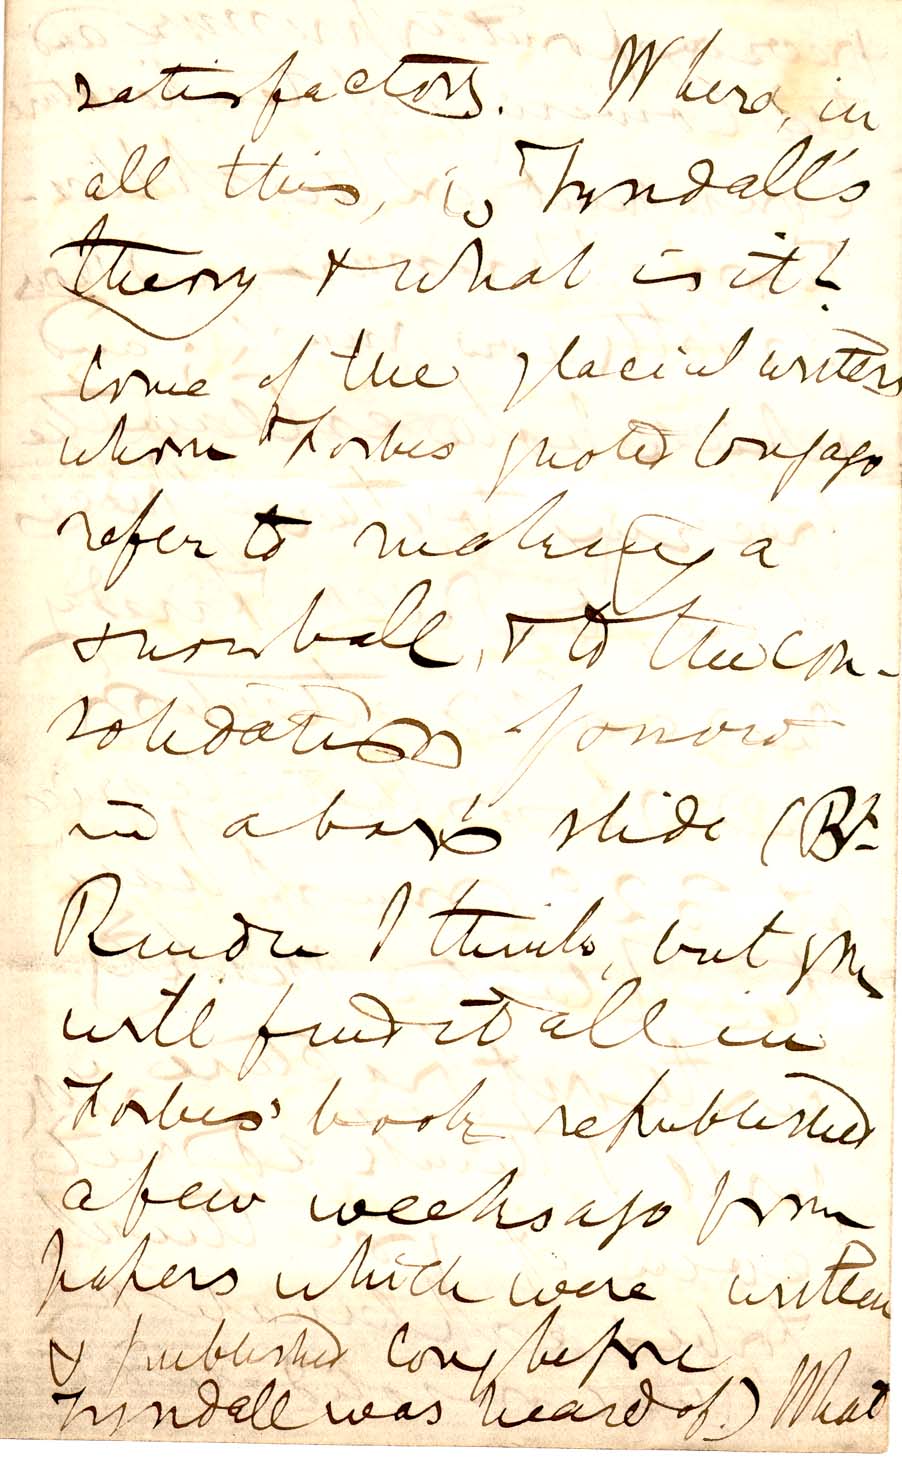 satisfactory. Where, in
all this, is Tyndall's
theory & what is it?
Some of the glacial writers
whom Forbes quoted long ago
refer to making a
snowball, & to the con-
solidation of snow
in a boy's slide (Bp.
Rendu I think, but you
will find it all in
Forbes' book republished
a few weeks ago from
papers which were written
& published long before
Tyndall was heard of.) What